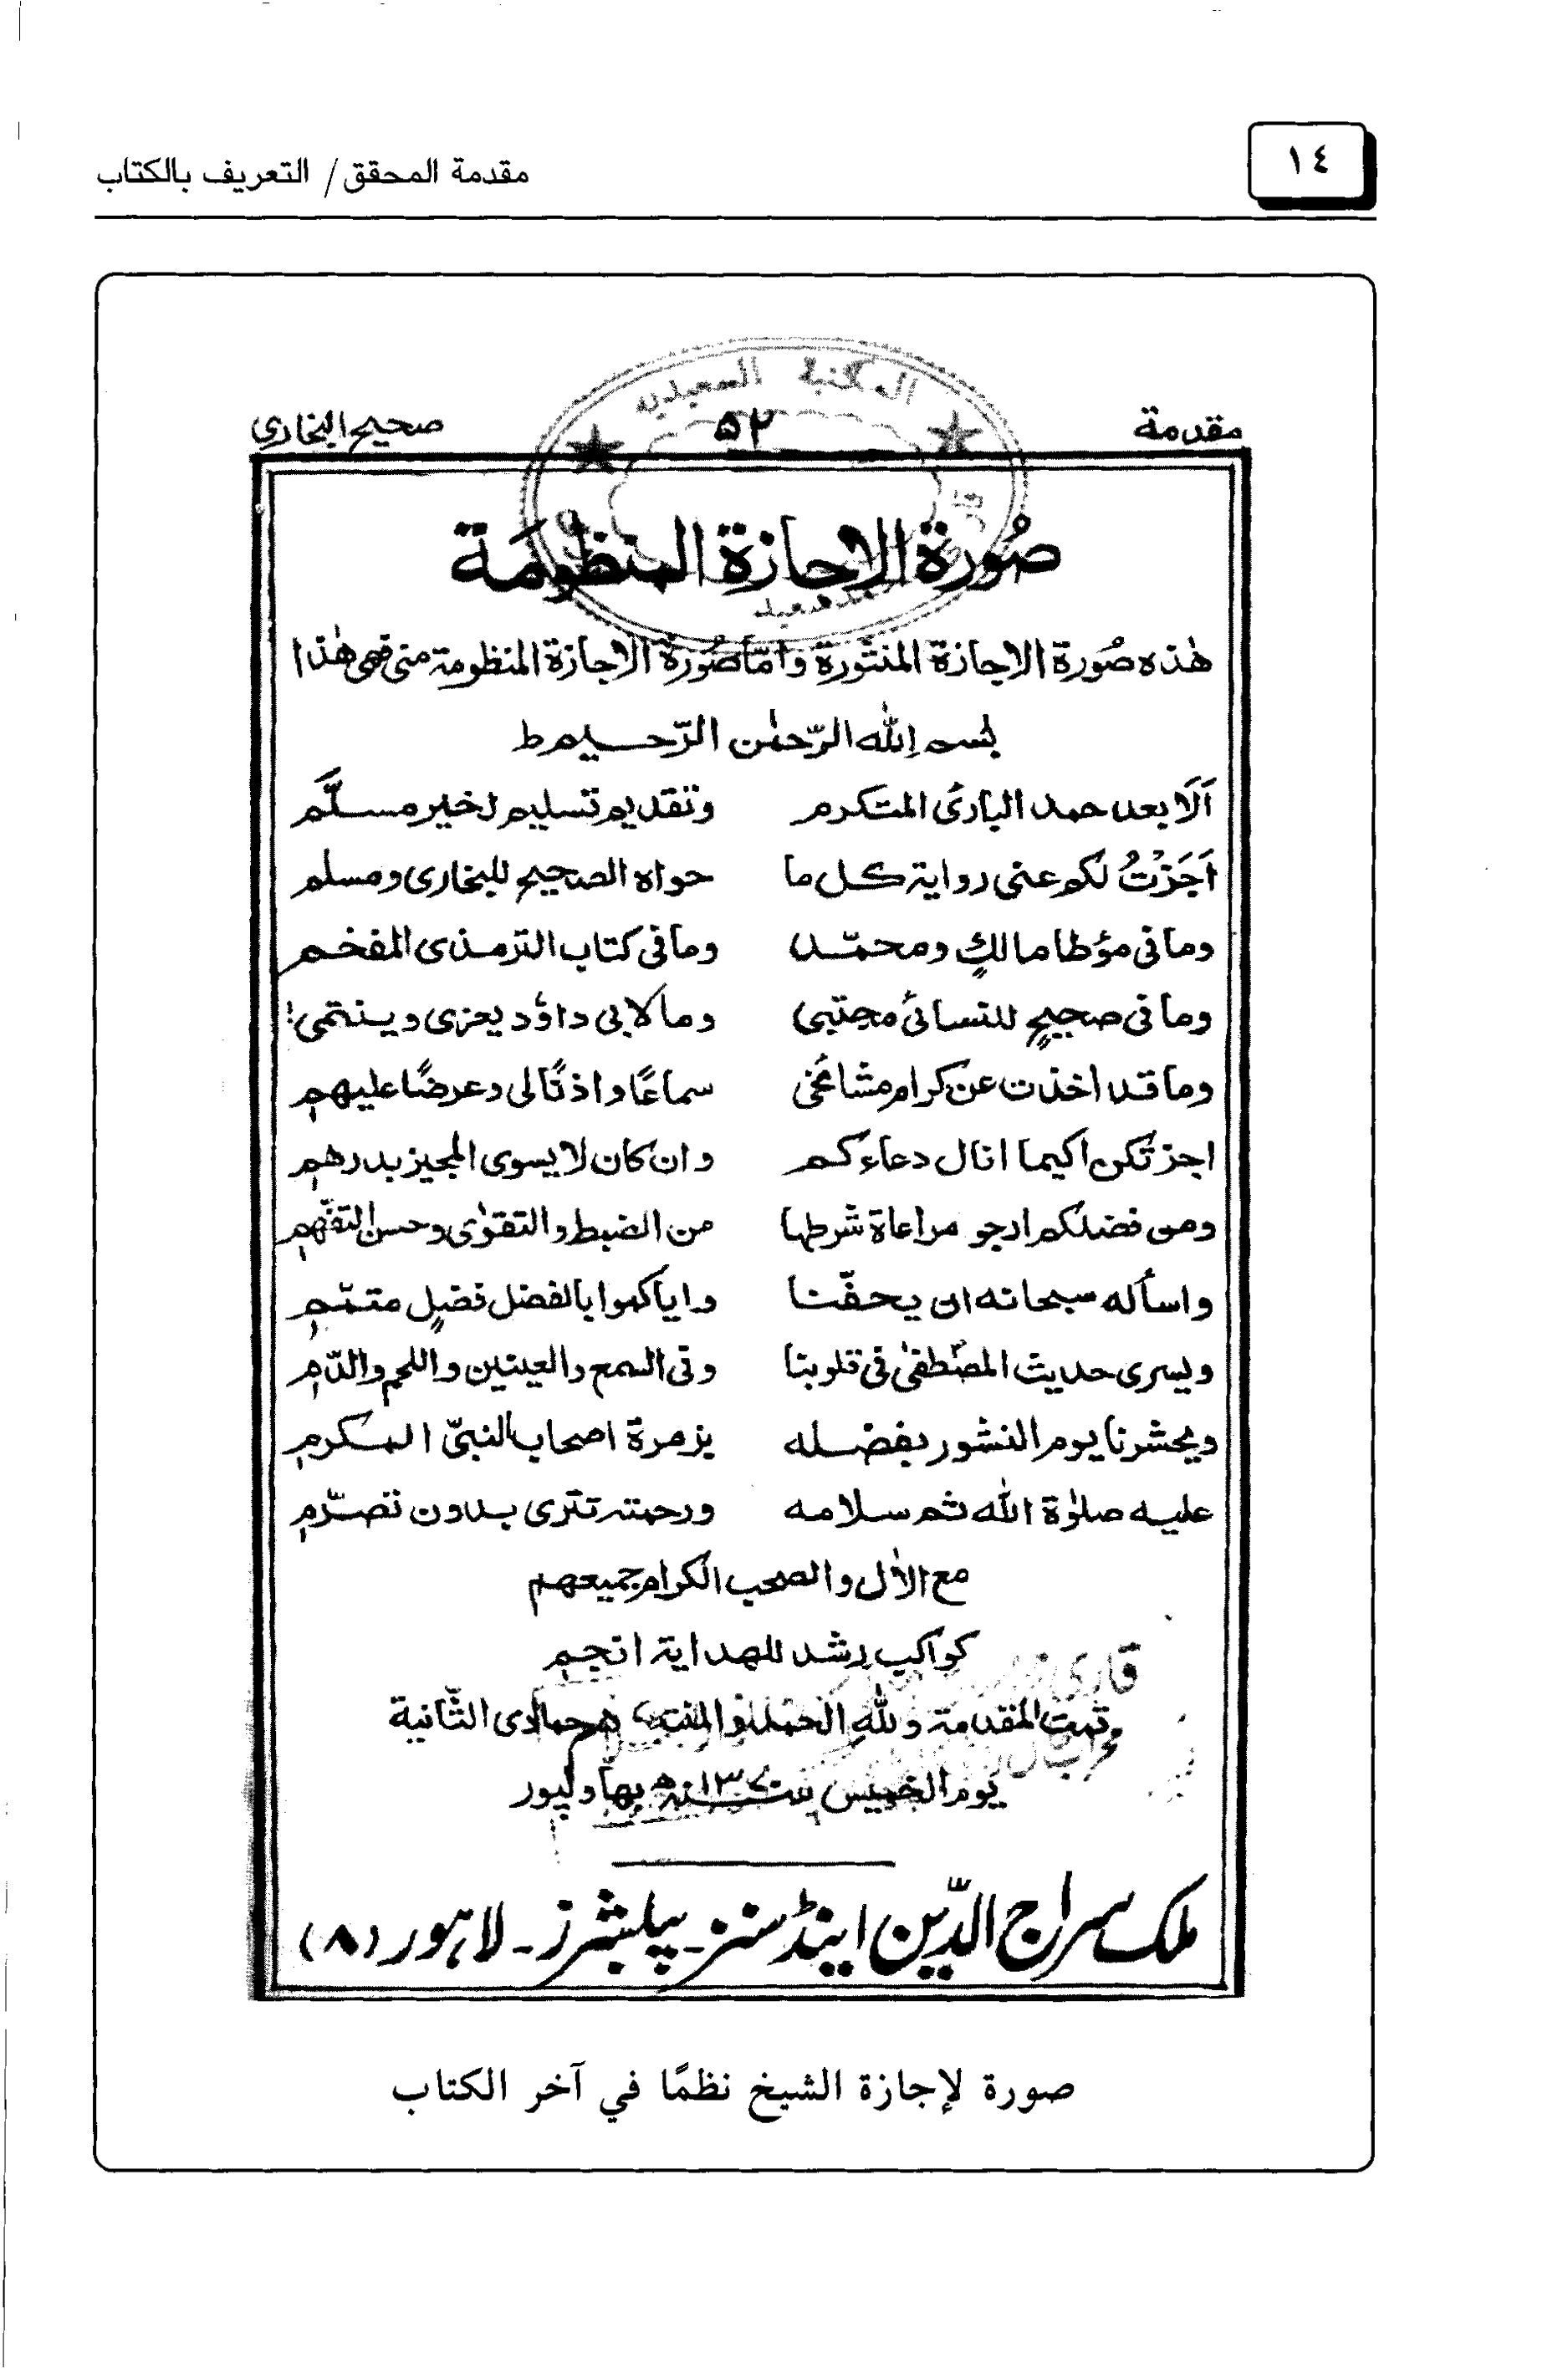 ١٤
مقدمة المحقق / التعريف بالكتاب
المكتبة السعيدية
مقدمة ۵۲ صحيح البخاري
صُورة الاجازة المنظومَة
هٰذه صُورة الاجازة المنثورة وامّا صُورة الاجازة المنظومة منى فهى هٰذا
بسم الله الرّحمٰن الرّحيم ط
اَلَا بعد حمد البارئ المتكرم وتقديم تسليم لخير مسلَّم
اَجَزْتُ لكم عنى رواية كل ما حواه الصحيح للبخارى ومسلم
وما فى مؤطا مالكٍ ومحمّد وما فى كتاب الترمذى المفخم
وما فى صحيحٍ للنسائ مجتبى وما لابى داؤد يعزى وينتمى!
وما قد اخذت عن كرام مشائخى سماعًا واذنًا لى وعرضًا عليهم
اجزتكم اكيما انال دعاءكم وان كان لا يسوى المجيز بدرهم
ومن فضلكم ارجو مراعاة شرطها من الضبط والتقوٰى وحسن التفّهم
واسأله سبحانه ان يحفّنا واياكموا بالفضل فضلٍ متمّم
ويسرى حديث المصطفىٰ فى قلوبنا وفى السمع والعينين واللحم والدّم
ويحشرنا يوم النشور بفضله بزمرة اصحاب النبىّ المكرم
عليه صلوٰة الله ثم سلامه ورحمته تترى بدون تصرّم
مع الاٰل والصحب الكرام جميعهم
كواكب رشد للهداية انجم
تمت المقدمة ولله الحمد والمنة، جمادى الثّانية
يوم الخميس سنه ١٣٧٠ھ بهاولپور
ملک سراج الدّین اینڈ سنز ـ پبلشرز ـ لاہور (۸)
صورة لإجازة الشيخ نظمًا في آخر الكتاب